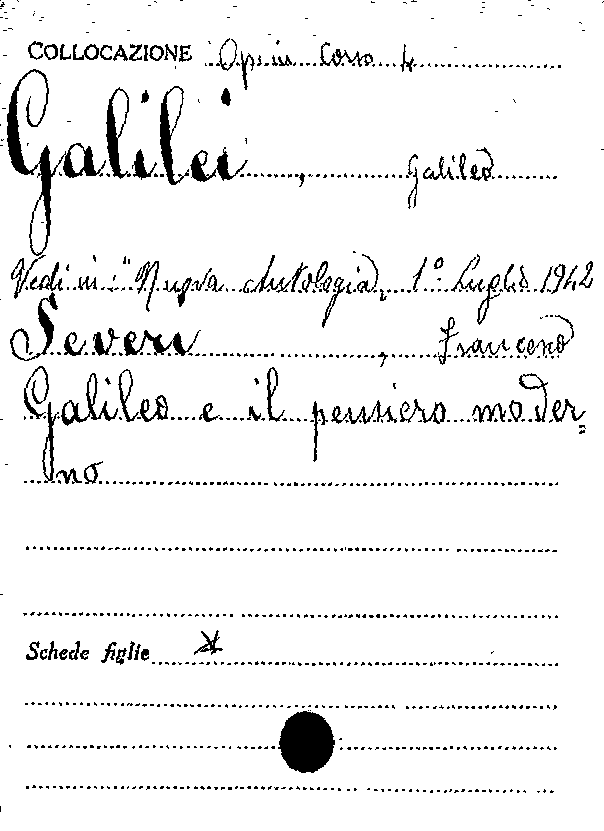 COLLOCAZIONE Op. in Corso 4
Galilei, Galileo
Vedi in: "Nuova Antologia, 1º Luglio 1942
Severi, Francesco
Galileo e il pensiero moder=
no
Schede figlie